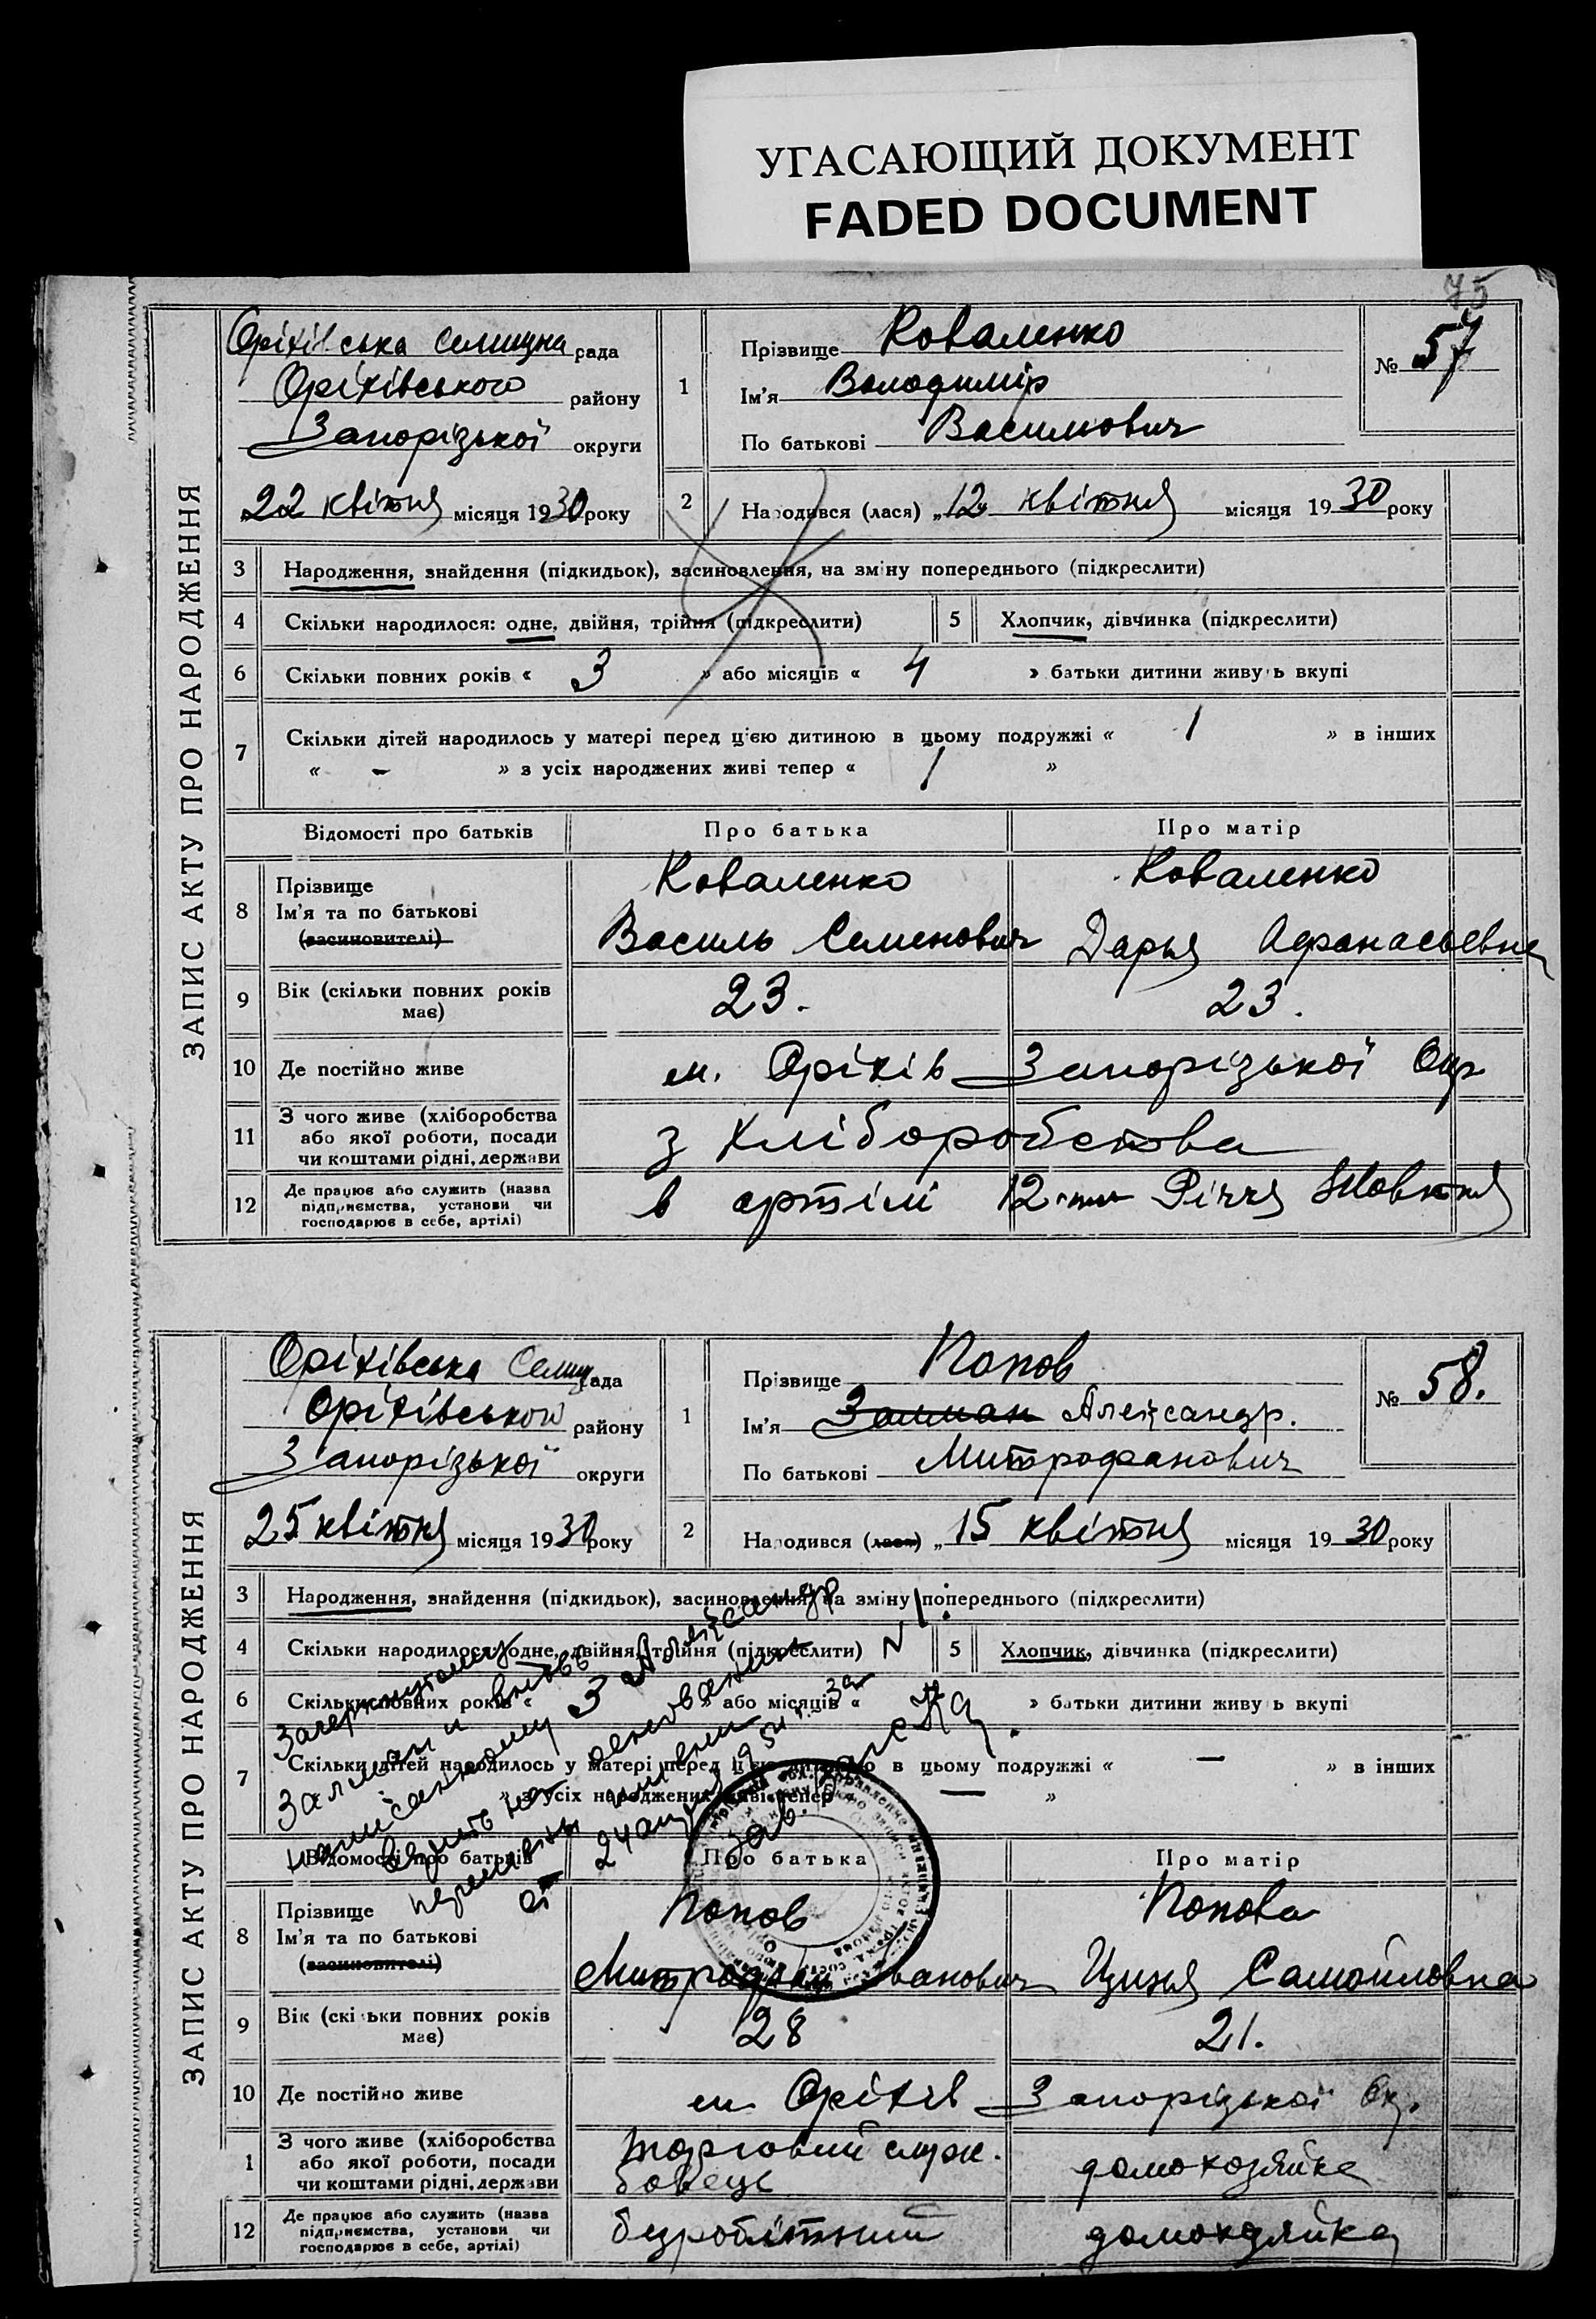 УГАСАЮЩИЙ ДОКУМЕНТ
FADED DOCUMENT
75
ЗАПИС АКТУ ПРО НАРОДЖЕННЯ
Оріхівська Селищна рада
Оріхівського району
Запорізької округи
22 квітня місяця 1930 року
1
Прізвище Коваленко
Ім'я Володимір
По батькові Васильович
№ 57
2 Народився (лася) „12 квітня місяця 1930 року
3 Народження, знайдення (підкидьок), засиновлення, на зміну попереднього (підкреслити)
4 Скільки народилося: одне, двійня, трійня (підкреслити)
5 Хлопчик, дівчинка (підкреслити)
6 Скільки повних років « 3 » або місяців « 4 » батьки дитини живуть вкупі
7 Скільки дітей народилось у матері перед цією дитиною в цьому подружжі « 1 » в інших
« - » з усіх народжених живі тепер « 1 »
Відомості про батьків Про батька Про матір
8 Прізвище Коваленко Коваленко
Ім'я та по батькові Василь Семенович Дарья Афанасьевна
(засиновителі)
9 Вік (скільки повних років має) 23. 23.
10 Де постійно живе м. Оріхів Запорізької Окр
11 З чого живе (хліборобства
або якої роботи, посади з хліборобства
чи коштами рідні, держави
12 Де працює або служить (назва
підприємства, установи чи в артілі 12-ти Річчя Жовтня
господарює в себе, артілі)
ЗАПИС АКТУ ПРО НАРОДЖЕННЯ
Оріхівська Селищ рада
Оріхівського району
Запорізької округи
25 квітня місяця 1930 року
1
Прізвище Попов
Ім'я Залман Александр.
По батькові Митрофанович
№ 58.
2 Народився (лася) „15 квітня місяця 1930 року
3 Народження, знайдення (підкидьок), засиновлення, на зміну попереднього (підкреслити)
4 Скільки народилося: одне, двійня, трійня (підкреслити)
5 Хлопчик, дівчинка (підкреслити)
6 Скільки повних років « » або місяців « » батьки дитини живуть вкупі
7 Скільки дітей народилось у матері перед цією дитиною в цьому подружжі « — » в інших
« » з усіх народжених живі тепер « — »
Зачеркнутому
Залман и вновь
написанному Александр
верить на основании
переписки
от 24 1954 г. за N
Зав.
Відомості про батьків Про батька Про матір
8 Прізвище Попов Попова
Ім'я та по батькові Митрофан Іванович Циля Самойловна
(засиновителі)
9 Вік (скільки повних років має) 28 21.
10 Де постійно живе м. Оріхів Запорізької Ок.
1 З чого живе (хліборобства торговий служ-
або якої роботи, посади бовець домохозяйка
чи коштами рідні, держави
12 Де працює або служить (назва
підприємства, установи чи безробітний домохозяйка
господарює в себе, артілі)